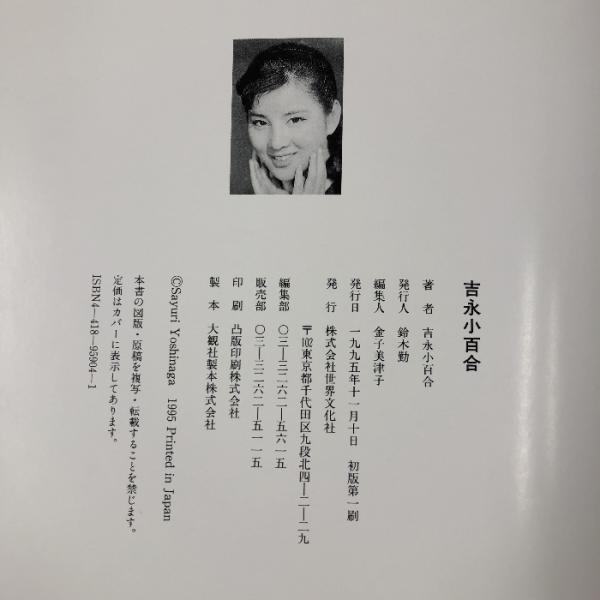 吉永小百合
著　者　吉永小百合
発行人　鈴木勤
編集人　金子美津子
発行日　一九九五年十一月十日　初版第一刷
発　行　株式会社世界文化社
〒102東京都千代田区九段北四―二―二九
編集部　〇三―三二六二―五六一五
販売部　〇三―三二六二―五一一五
印　刷　凸版印刷株式会社
製　本　大観社製本株式会社
©Sayuri Yoshinaga　1995 Printed in Japan
本書の図版・原稿を複写・転載することを禁じます。
定価はカバーに表示してあります。
ISBN4―418―95904―1